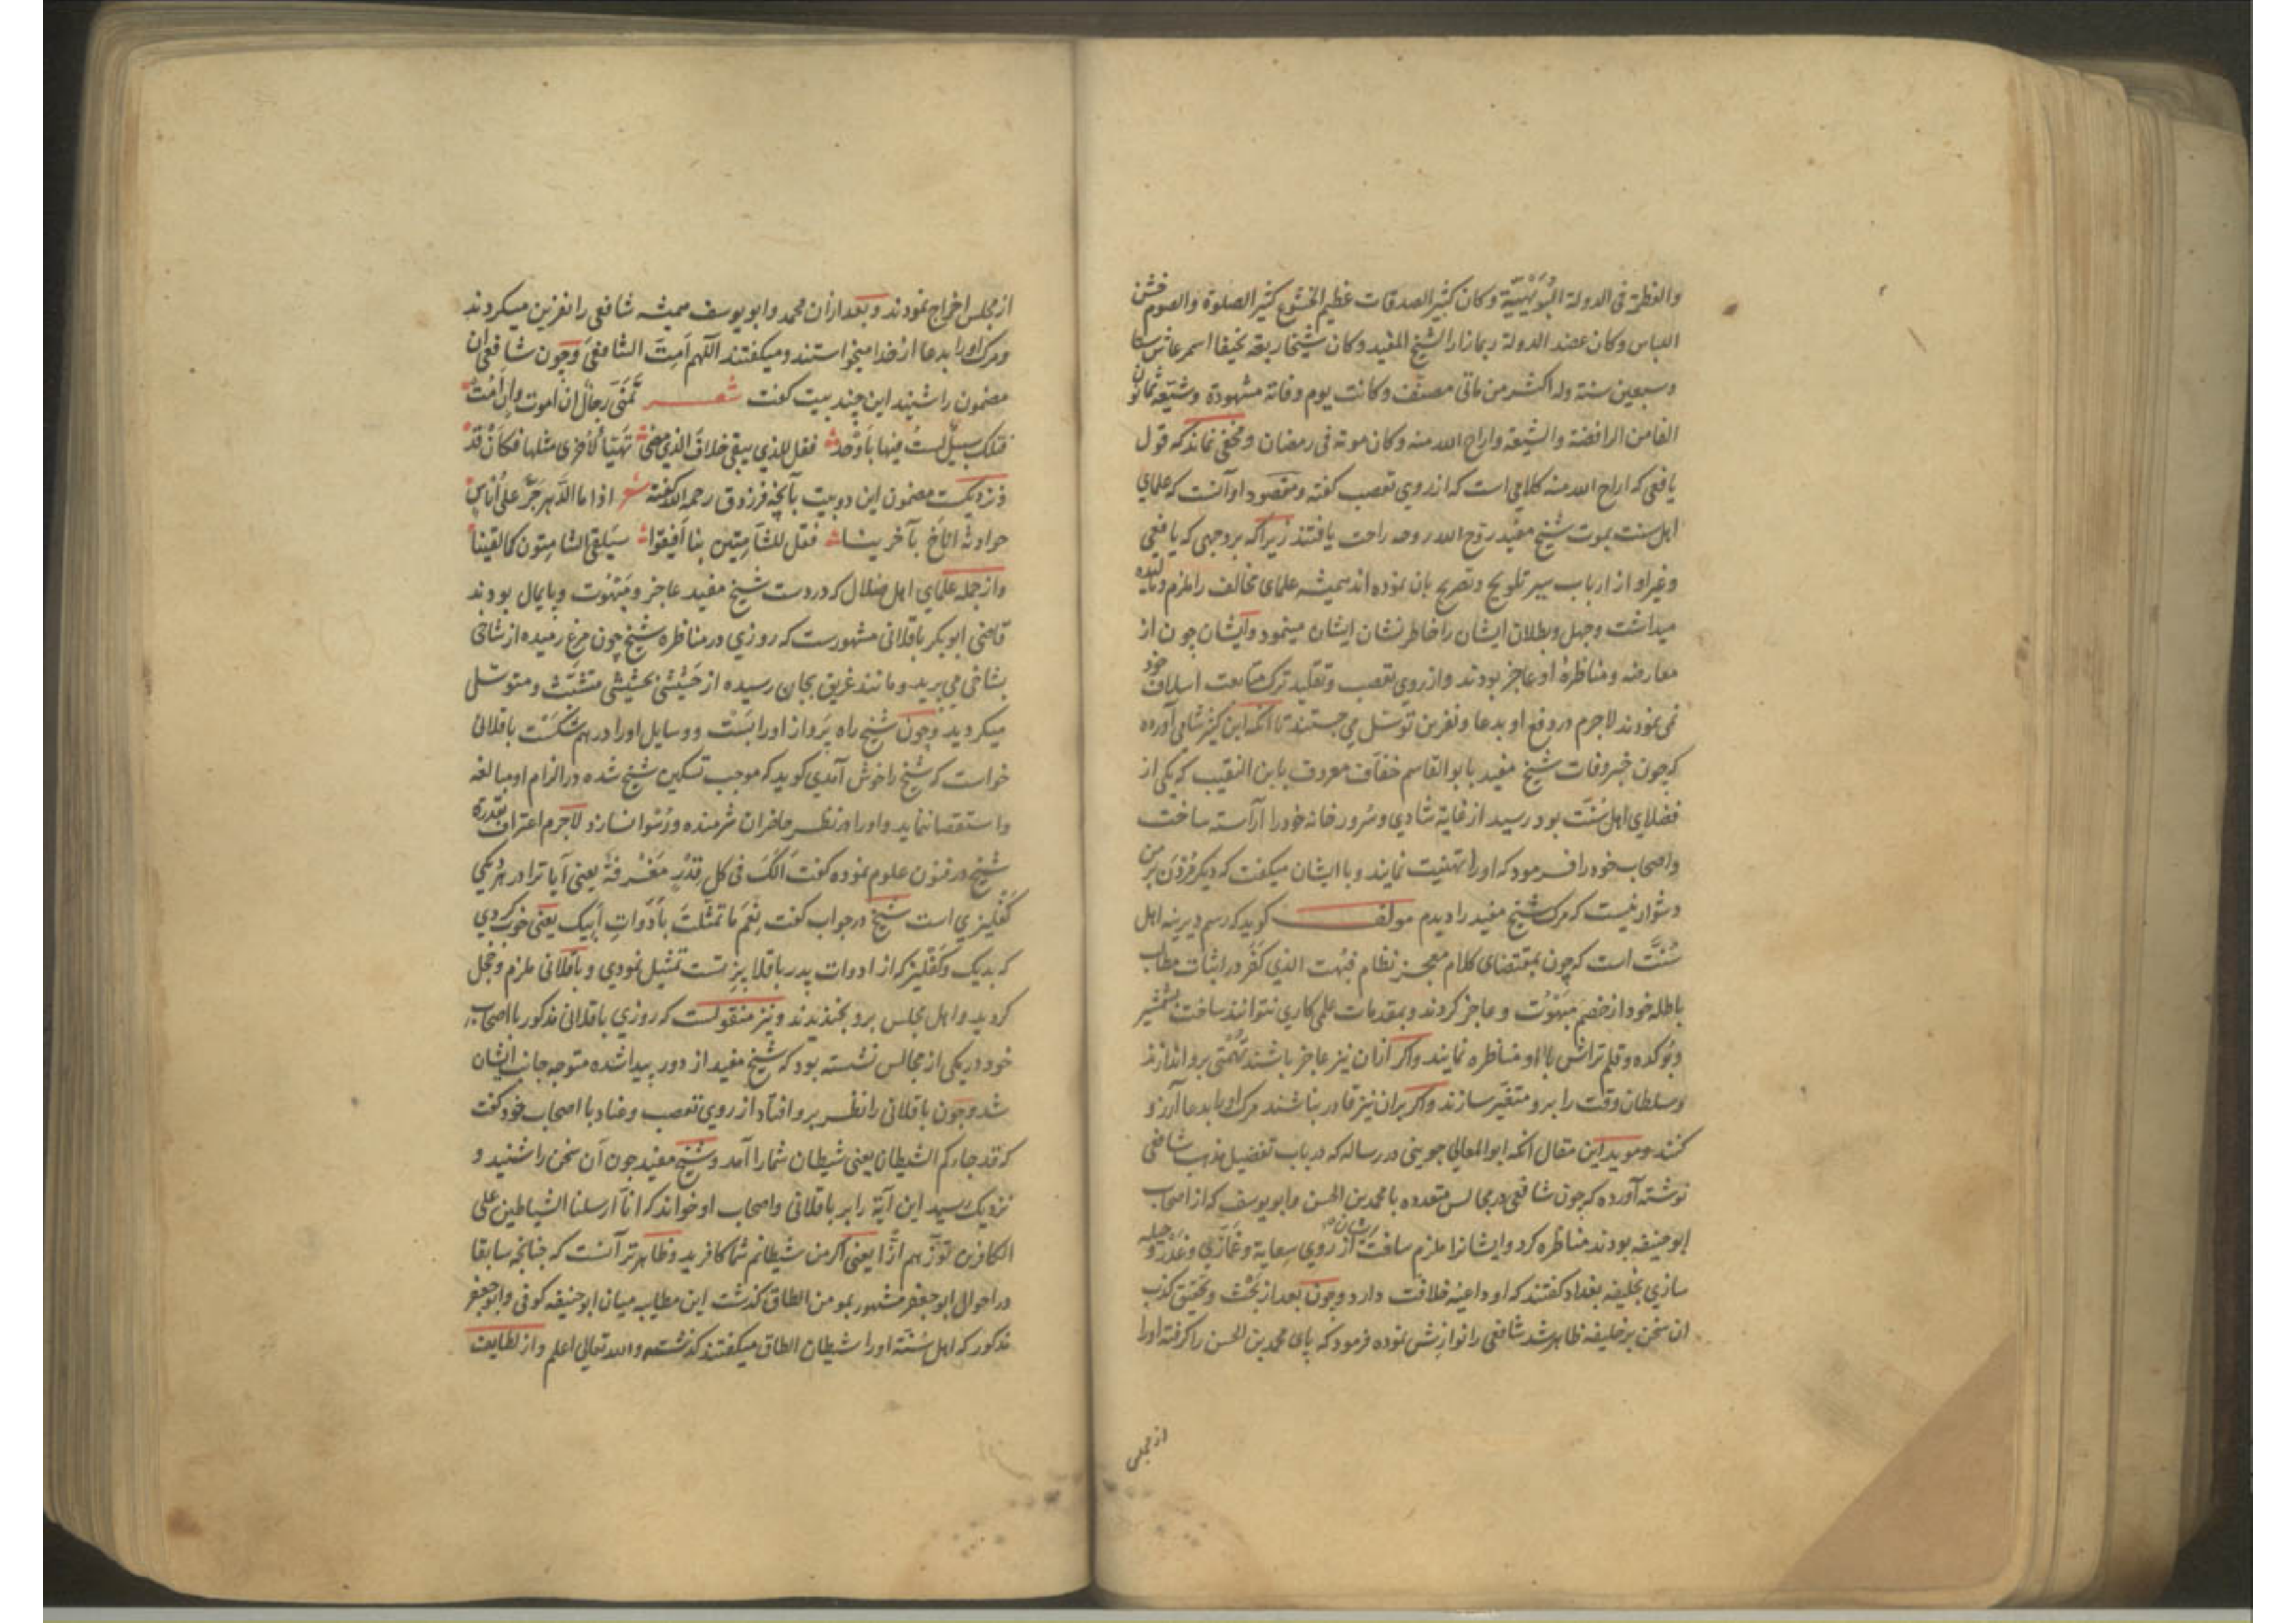 والعظمة فی الدولة البُوَیْهِیَّة وکان کثیر الصدقات عظیم الخشوع کثیر الصلوة والصوم خشن
اللباس وکان عضد الدولة ربما زار الشیخ المفید وکان شیخا ربعة نحیفا اسمر عاش ستا
وسبعین سنة وله اکثر من مأتی مصنّف وکانت یوم وفاته مشهودة وشیّعه ثمانون
الفا من الرافضة والشیعة واراح الله منه وکان موته فی رمضان ومخفی نماند که قول
یافعی که اراح الله منه کلامی است که از روی تعصب گفته ومقصود او آنست که علمای
اهل سنت بموت شیخ مفید روّح الله روحه راحت یافتند زیرا که بروجهی که یافعی
وغیر او از ارباب سیر تلویح وتصریح بان نموده اند همیشه علمای مخالف را ملزم و
میداشت وجهل وبطلان ایشان را خاطر نشان ایشان مینمود وایشان چون از
معارضه ومناظرهٔ او عاجز بودند واز روی تعصب وتقلید ترک متابعت اسلاف خود
نمی نمودند لاجرم در دفع او بدعا ونفرین توسل می جستند تا آنکه ابن کثیر شامی آورده
که چون خبر وفات شیخ مفید بابو القاسم خفاف معروف بابن النقیب که یکی از
فضلای اهل سُنّت بود رسید از غایة شادی وسُرور خانه خود را آراسته ساخت
واصحاب خود را فرمود که او را تهنیت نمایند وبا ایشان میگفت که دیگر مُردن بر من
دشوار نیست که مرک شیخ مفید را دیدم مولف گوید که رسم دیرینه اهل
سُنَّت است که چون بمقتضای کلام معجز نظام فبُهت الذی کفر در اثبات مطالب
باطله خود از خصم مَبْهُوْت وعاجز گردند وبمقدمات علمی کاری نتوانند ساخت بشمشیر
و وقلم تراش با او مناظره نمایند واگر ازان نیز عاجز باشند تُهْمَتی برو اندازند
وسلطان وقت را برو متغیّر سازند واگر بران نیز قادر نباشند مرک او را بدعا آرزو
کنند وموید این مقال آنکه ابو المعالی جوینی در رساله که در باب تفضیل مذهب شافعی
نوشته آورده که چون شافعی در مجالس متعدده با محمد بن الحسن وابو یوسف که از اصحاب
ابو حنیفه بودند مناظره کرد وایشانرا ملزم ساخت ایشان از روی سِعایة وغَمّازی وغَدْر و حیله
سازی بخلیفه بغداد گفتند که او داعیهٔ خلافت دارد وچون بعد از بَحْث وتحقیق کذب
ان سخن بر خلیفه ظاهر شد شافعی را نوازش نموده فرمود که پای محمد بن الحسن را گرفته او را
از مجلس
از مجلس اخراج نمودند وبعد ازان محمد وابو یوسف همیشه شافعی را نفرین میکردند
ومرک او را بدعا از خدا میخواستند ومیگفتند اللّهم اَمِتِ الشافعیَّ وچون شافعی ان
مضمون را شنید این چند بیت گفت شعر تَمَنّی رجالٌ ان اموت وان اَمُتْ
فتلک سبیلٌ لستُ فیها باَوْحَد فقل للذی یبقی خلافَ الذی مضی تَهَیَّأ لاُخری مثلها فکاَنْ قَدْ
ونزدیکست مضمون این دو بیت بآنچه فرزدق رحمه الله گفته شعر اذا ما الدَّهر جَرَّ علی اُناسٍ
حوادثه اناخ بآخرینا فقل للشّامِتین بنا اَفیقوا سَیَلقی الشّامِتون کما لقینا
واز جمله علمای اهل ضلال که در دست شیخ مفید عاجز ومَبْهُوت وپایمال بودند
قاضی ابو بکر باقلانی مشهورست که روزی در مناظره شیخ چون مرغ رمیده از شاخی
بشاخی می پرید ومانند غریق بجان رسیده از حَشیشی بحشیشی متشبّث ومتوسّل
میگردید وچون شیخ راه پَرواز او را بَسَت ووسایل او را در هم شکَسْت باقلانی
خواست که شیخ را خوش آمدی گوید که موجب تسکین شیخ شده در الزام او مبالغه
واستقصا ننماید واو را در نظر حاضران شرمنده ورُسْوا نسازد لاجرم اعتراف بقدرة
شیخ در فنون علوم نموده گفت اَلَکَ فی کل قِدْرٍ مَغْرفةٌ یعنی آیا ترا در هر دیگی
کَفْلیزی است شیخ در جواب گفت نِعْمَ ما تمثّلتَ باَدَواتِ اَبیک یعنی خوب کردی
که بدیک وکفلیز که از ادوات پدر باقلا پز تست تمثیل نمودی وباقلانی ملزم وخجل
گردید واهل مجلس برو بخندیدند ونیز منقولست که روزی باقلانی مذکور با اصحاب
خود در یکی از مجالس نشسته بود که شیخ مفید از دور پیدا شده متوجه جانب ایشان
شد وچون باقلانی را نظر برو افتاد از روی تعصب وعناد با اصحاب خود گفت
که قد جاءکم الشیطان یعنی شیطان شما را آمد وشیخ مفید چون آن سخن را شنید و
نزدیک رسید این آیة را بر باقلانی واصحاب او خواند که انّا ارسلنا الشیاطین علی
الکافرین تؤزّهم ازًّا یعنی اگر من شیطانم شما کافرید وظاهرتر آنست که چنانچه سابقا
در احوال ابو جعفر مشهور بمومن الطاق گذشت این مطایبه میان ابو حنیفه کوفی وابو جعفر
مذکور که اهل سُنّة او را شیطان الطاق میگفتند گذشته والله تعالی اعلم واز لطایف